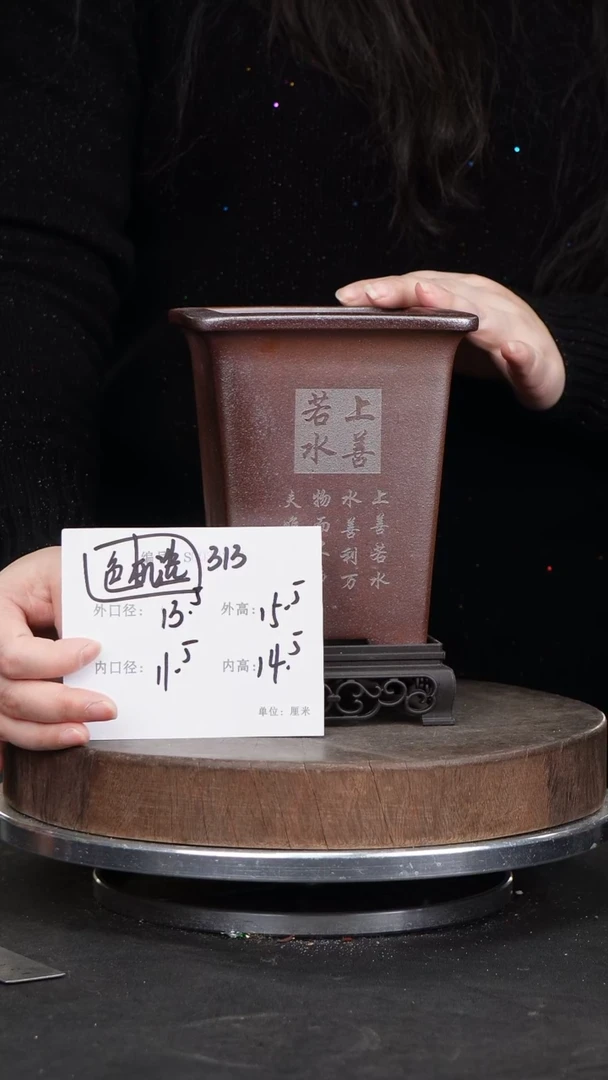 上善
若水
上善若水
水善利万
物而
夫
编号 S
色机选 313
外口径: 13.5 外高: 15.5
内口径: 11.5 内高: 14.5
单位: 厘米